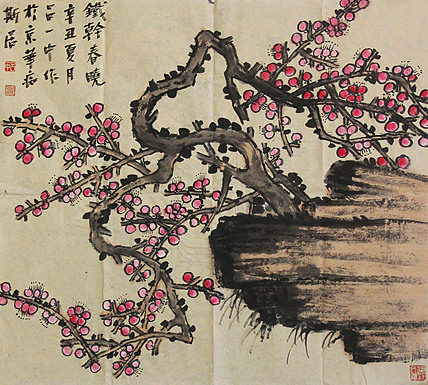 鐵幹春曉
辛丑夏月
一 作
於京華
斯居